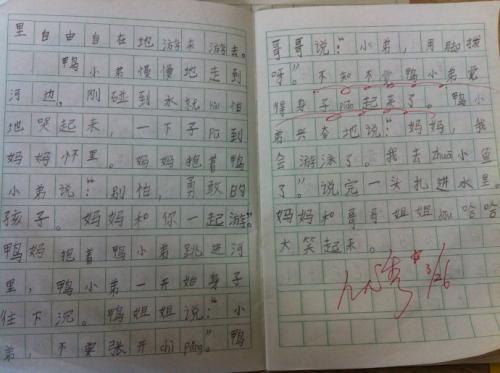 里自由自在地游来游去。
鸭小弟慢慢地走到
河边。刚碰到水就pà怕
地哭起来，一下子pū到
妈妈怀里。妈妈抱着鸭
小弟说：“别怕，勇敢的
孩子。妈妈和你一起游。”
鸭妈抱着鸭小弟跳进河
里，鸭小弟一开始身子
往下沉。鸭姐姐说：“小
弟，不要张开chì pǎng。”鸭
哥哥说：“小弟，用脚拨
呀。”不知不觉鸭小弟觉
得身子起来了。鸭小
弟兴奋地说：“妈妈，我
会游泳了。我去zhuō小鱼
了。”说完一头扎进水里
妈妈和哥哥姐姐哈哈
大笑起来。
优秀
3/26